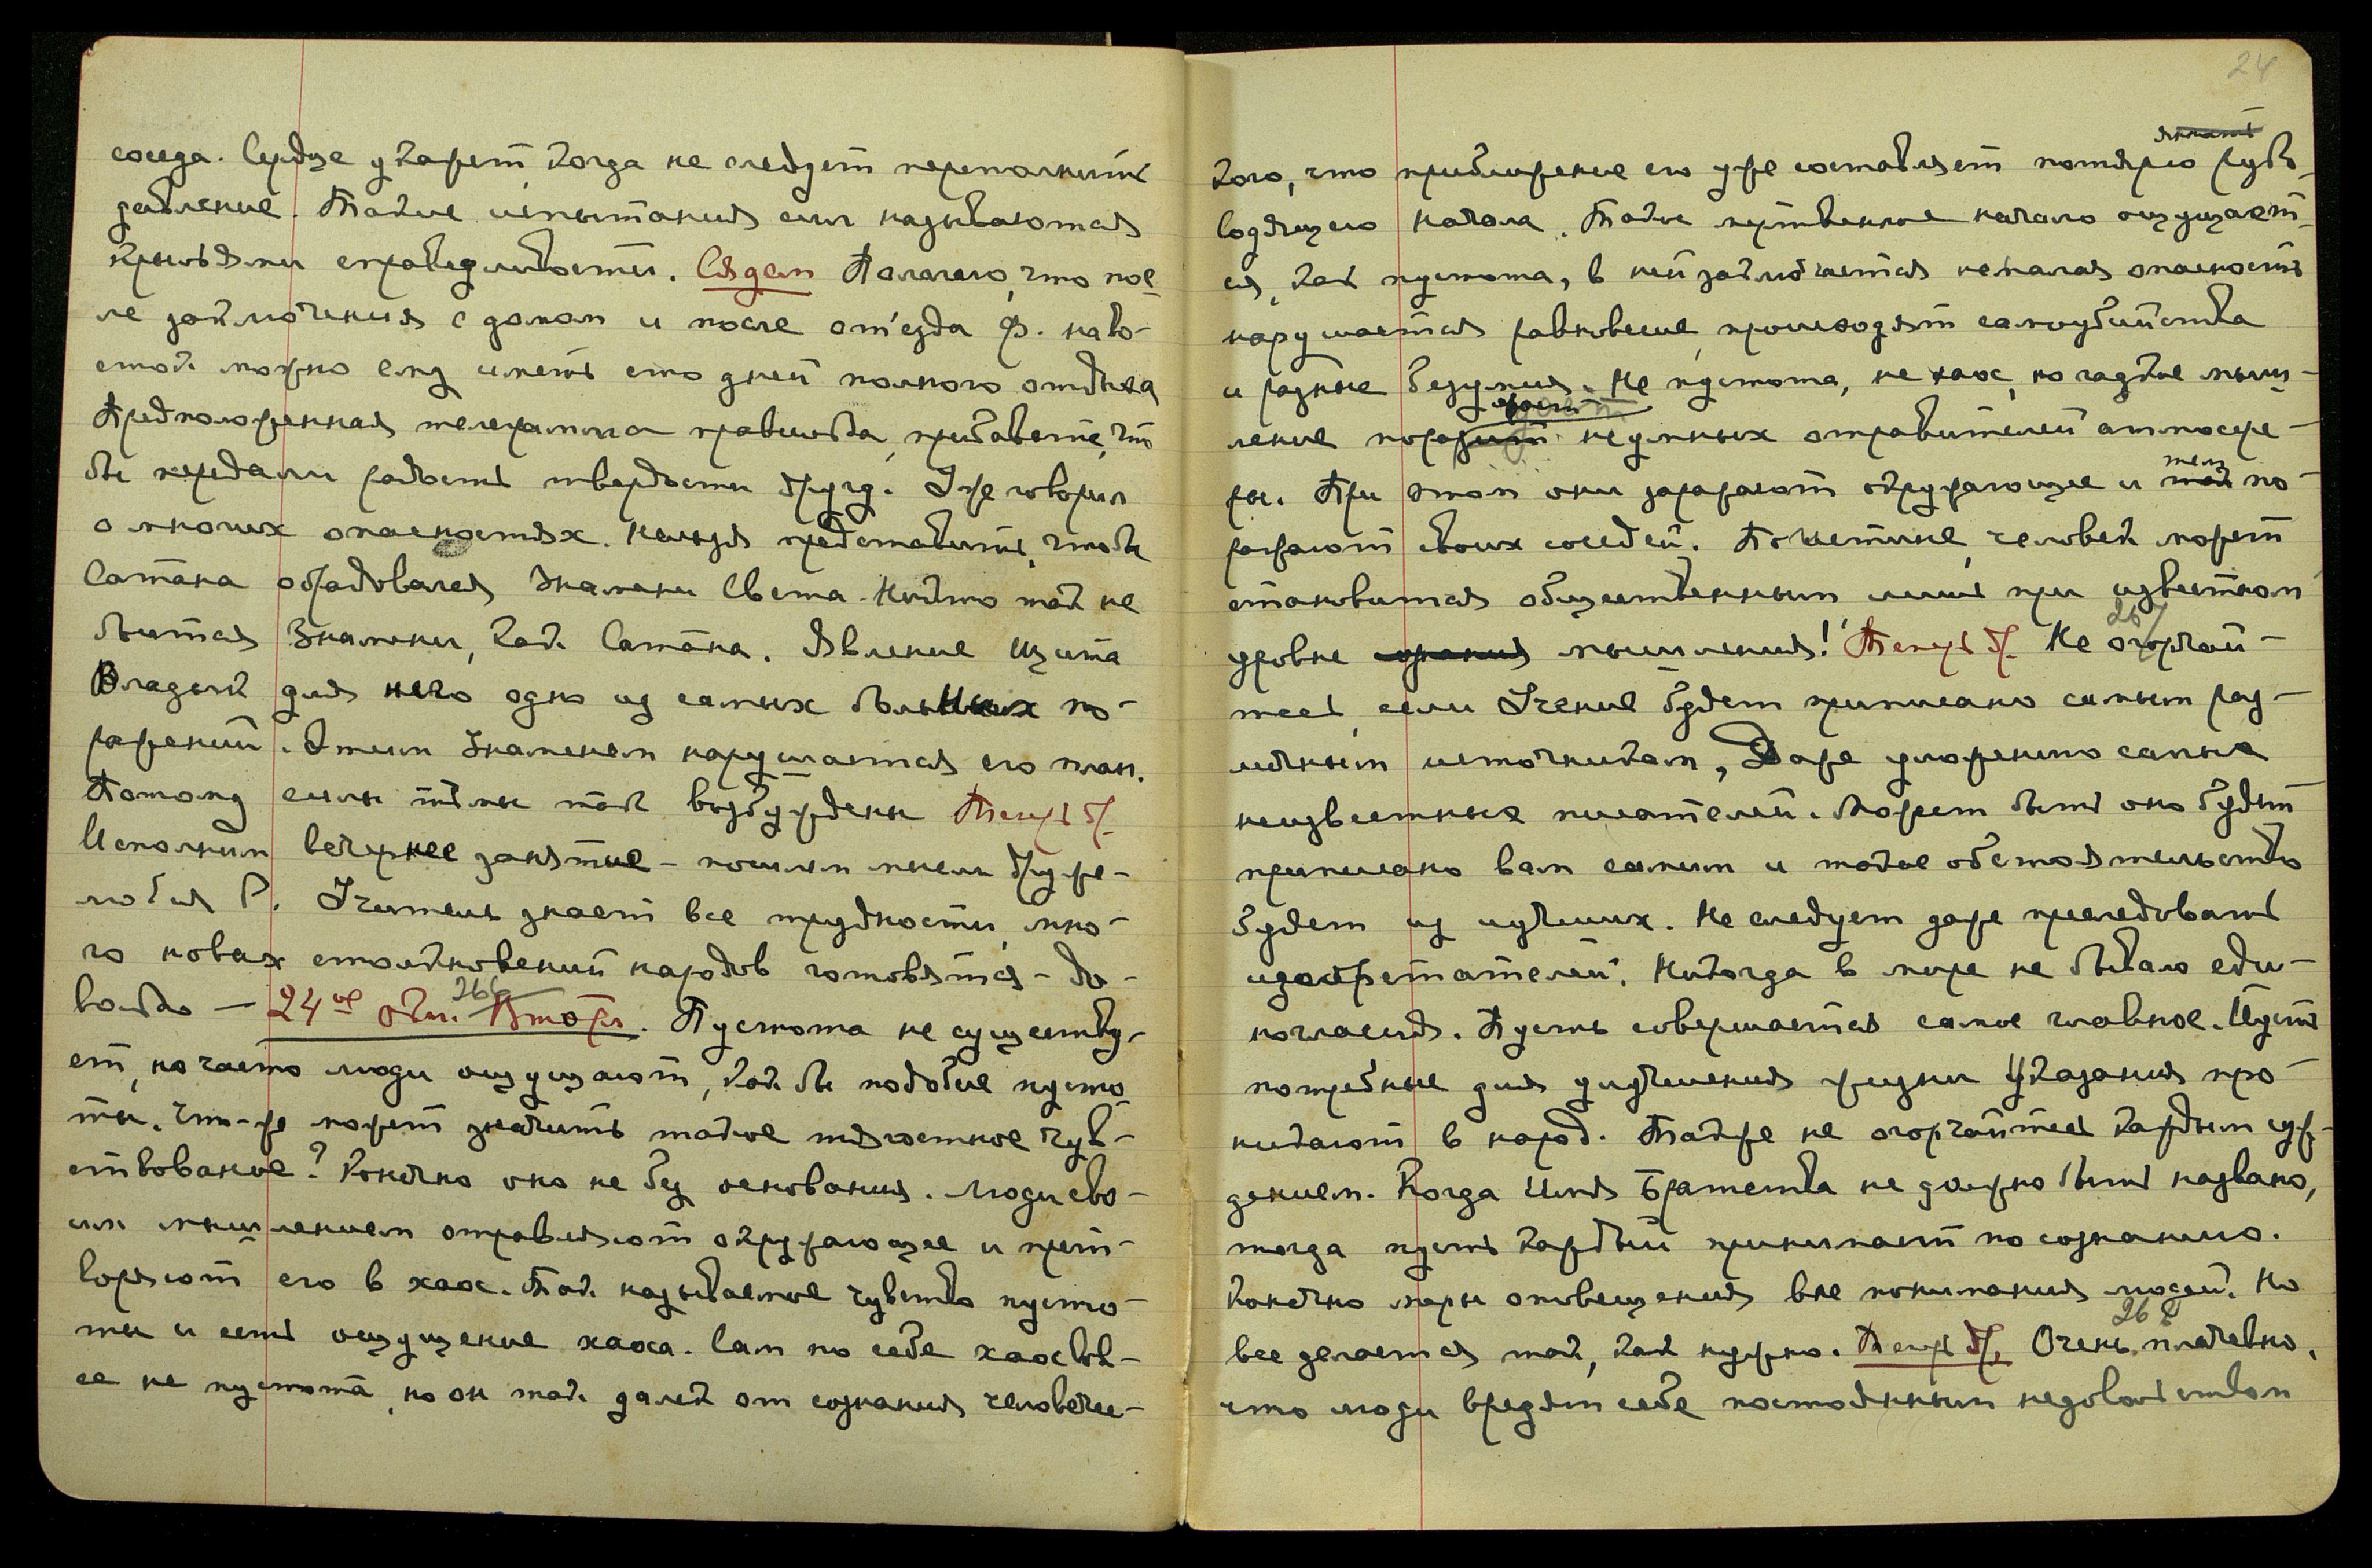 соседа. Сердце укажет, когда не следует переполнить
давление. Такие испытания сил называются
крыльями справедливости. Сядем Полагаю, что пос-
ле заключения с домом и после от'езда Ф. наво-
можно ему иметь сто дней полного отдыха
Предположенная телеграмма правильна, прибавьте, что
бы передали радость твердости другу. Уже говорил
о многих опасностях. Нельзя представить, чтобы
Сатана обрадовался Знамени Света. Никто так не
боится Знамени, как Сатана. Явление Щита
Владык для него одно из самых больных по-
ражений. Этим Знаменем нарушается его план.
Потому силы тьмы так возбуждены
Исполним вечернее занятие - пошлем мысли
Р. Учитель знает все трудности, мно-
го новых столкновений народов готовятся - до-
вольно — 24ое окт. Вторн. 266 Пустота не существу-
ет, но часто люди ощущают, как бы подобие пусто
ты. Что-же может значить такое тягостное чув-
ствование? Конечно оно не без основания. Люди сво-
им мышлением отравляют окружающее и прет-
воряют его в хаос. Так называемое чувство пусто-
ты и есть ощущение хаоса. Сам по себе хаос вов-
се не пустота, но он так далек от сознания человечес-
24
кого, что приближение его уже составляет потерю руко-
водящего начала. Такое мертвенное начало ощущает-
ся, как пустота, в ней заключается немалая опасность
нарушается равновесие, происходят самоубийства
и разные безумия. Не пустота, не хаос, но гадкое мыш-
ление поражает неумных отравителей атмосфе-
ры. При этом они заражают окружающее и тем по-
ражают своих соседей. Поистине, человек может
становиться общественным лишь при известном
уровне сознания мышления! 267 Не огорчай-
тесь, если Учение будет приписано самым раз-
личным источникам, Даже уможению самых
неизвестных писателей. Может быть оно будет
приписано вам самим и такое обстоятельство
будет из лучших. Не следует даже преследовать
изобретателей. Никогда в мире не бывало еди-
ногласия. Пусть совершается самое главное. Пусть
потребные для улучшения жизни Указания про-
никают в народ. Также не огорчайтесь каждым суж-
дением. Когда Имя Братства не должно быть названо,
тогда пусть каждый принимает по сознанию.
Конечно меры оповещения вне понимания людей. Но
все делается так, как нужно. 268 Очень плачевно,
что люди вредят себе постоянным недовольством